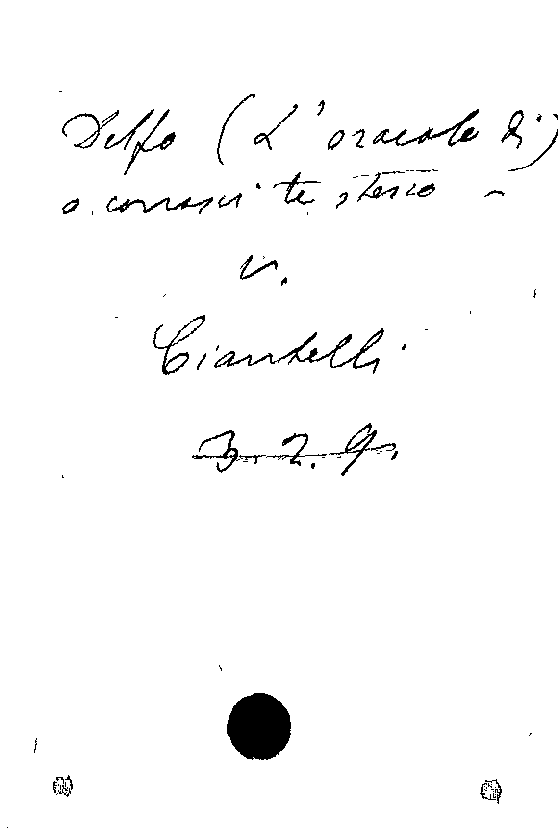 Delfo (L'oracolo di)
o conosci te stesso -
v.
Ciantelli
3. 2. 9.